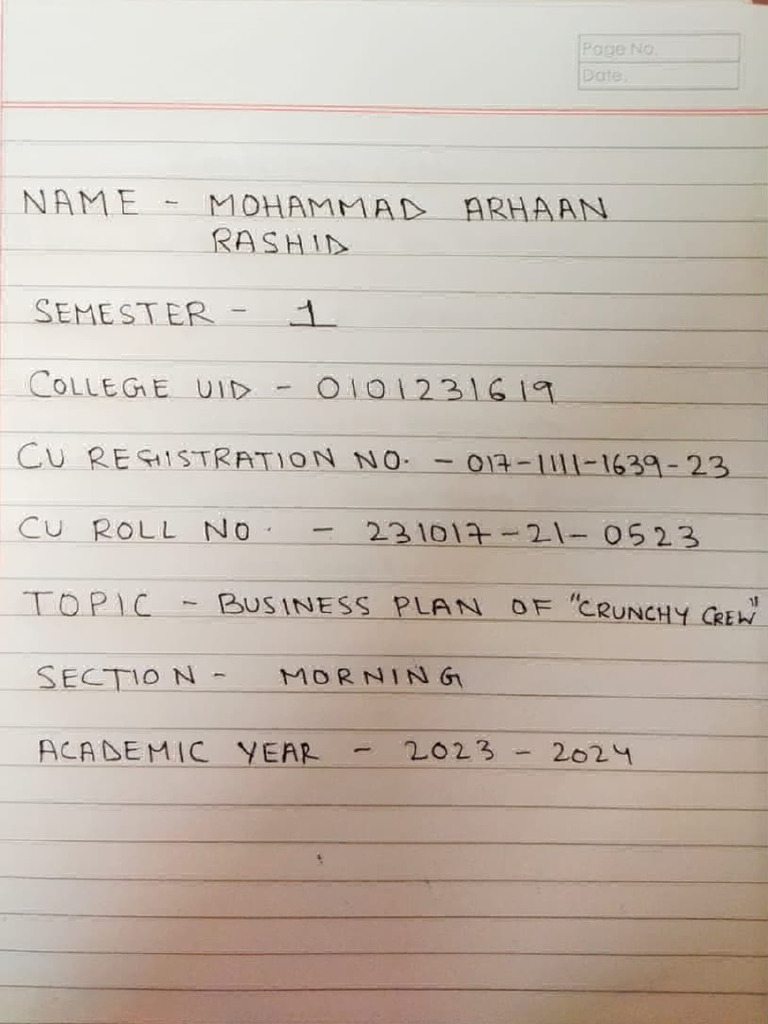 Page No.
Date.
NAME - MOHAMMAD ARHAAN
RASHID
SEMESTER - 1
COLLEGE UID - 0101231619
CU REGISTRATION NO. - 017-1111-1639-23
CU ROLL NO. - 231017-21-0523
TOPIC - BUSINESS PLAN OF "CRUNCHY CREW"
SECTION - MORNING
ACADEMIC YEAR - 2023 - 2024